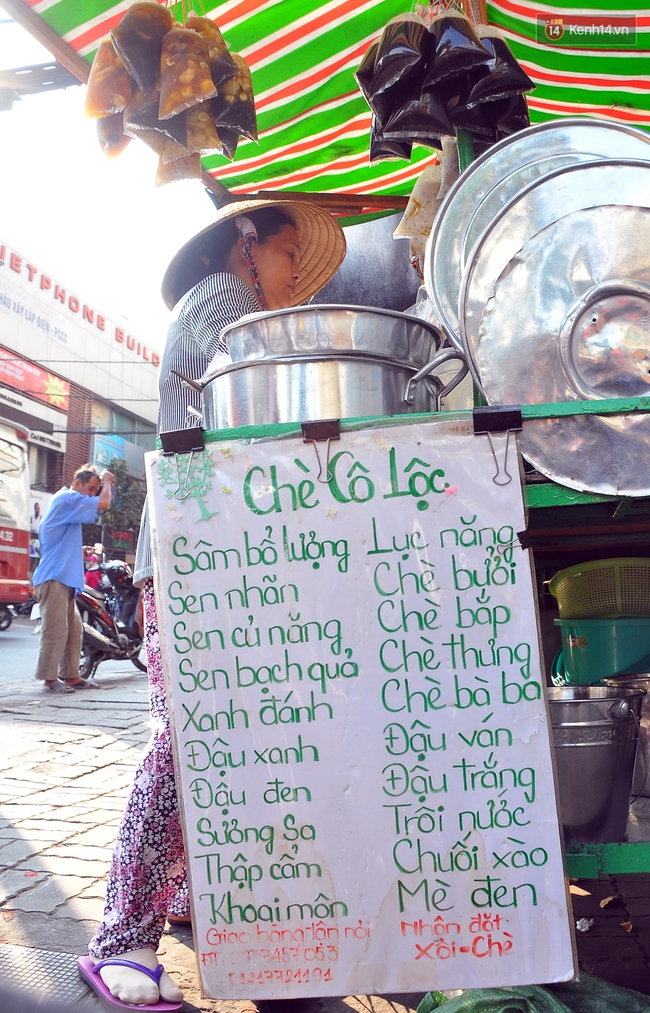 14 Kenh14.vn
IETPHONE BUILD
HẦU XÂY LẮP ĐIỆN - PCCC
Chè Cô Lộc
Sâm bổ lượng
Sen nhãn
Sen củ năng
Sen bạch quả
Xanh đánh
Đậu xanh
Đậu đen
Sương Sa
Thập cẩm
Khoai môn
Giao hàng tận nơi
ĐT:
01217721191
Lục năng
Chè bưởi
Chè bắp
Chè thưng
Chè bà ba
Đậu ván
Đậu trắng
Trôi nước
Chuối xào
Mè đen
Nhận đặt
Xôi-Chè